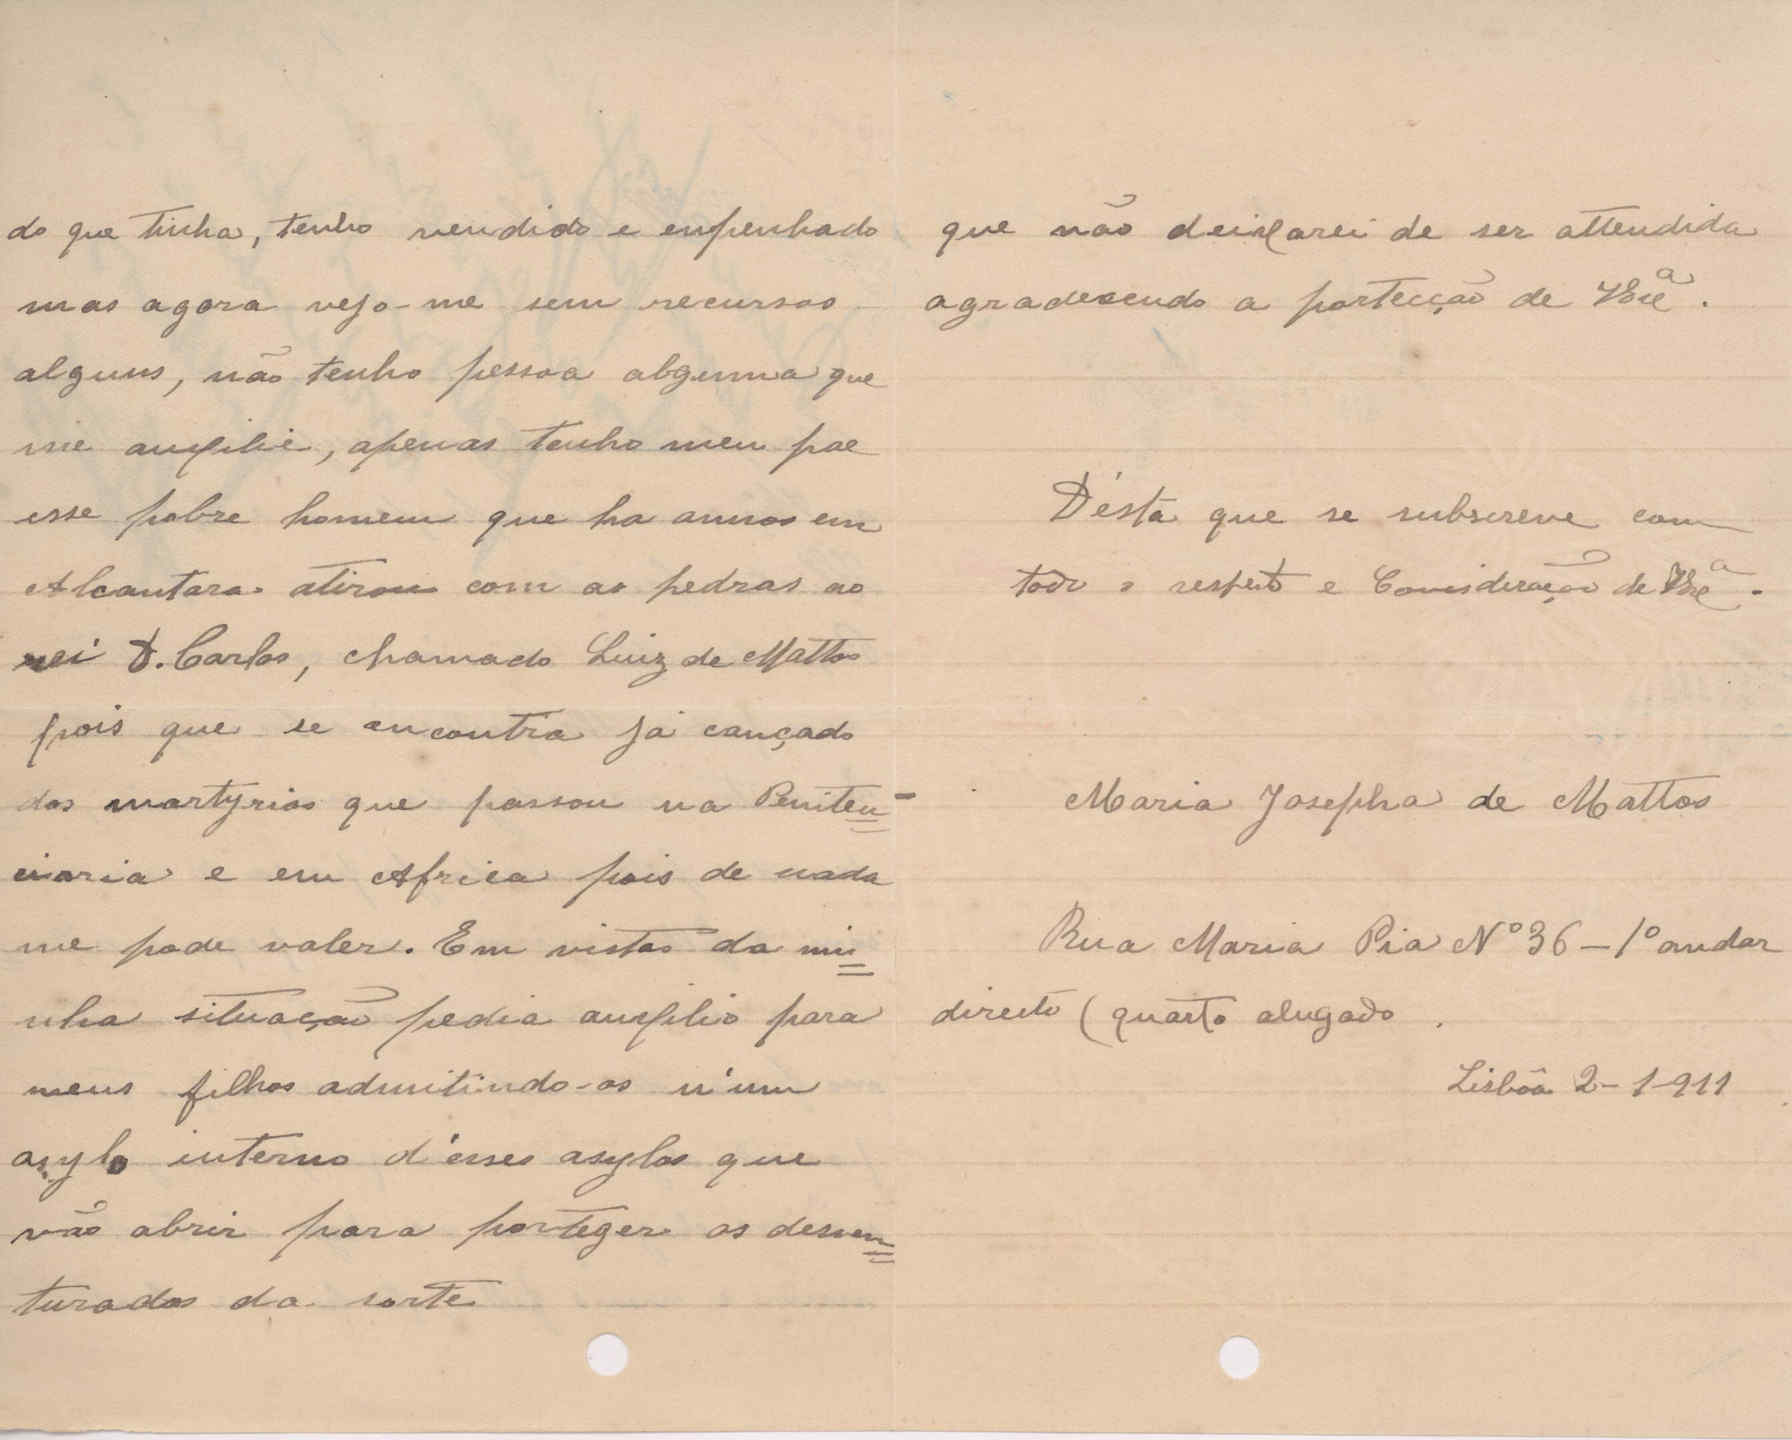 do que tinha, tenho vendido e enpenhado
mas agora vejo-me sem recursos
alguns, não tenho pessoa alguma que
me auxilie, apenas tenho meu pae
esse pobre homem que ha annos em
Alcantara atirou com as pedras ao
rei D. Carlos, chamado Luiz de Mattos
pois que se encontra já cançado
dos martyrios que passou na Peniten-
ciaria e em Africa pois de nada
me pode valer. Em vistas da mi=
nha situação pedia auxilio para
meus filhos admitindo-os n'um
asylo interno d'esses asylos que
vão abrir para porteger os desven=
turados da sorte
que não deixarei de ser attendida
agradecendo a portecção de VExª.
D'ésta que se subscreve com
todo o respeito e Consideração de VExª.
Maria Josepha de Mattos
Rua Maria Pia Nº 36 - 1º andar
direito (quarto alugado
Lisbôa 2-1-911